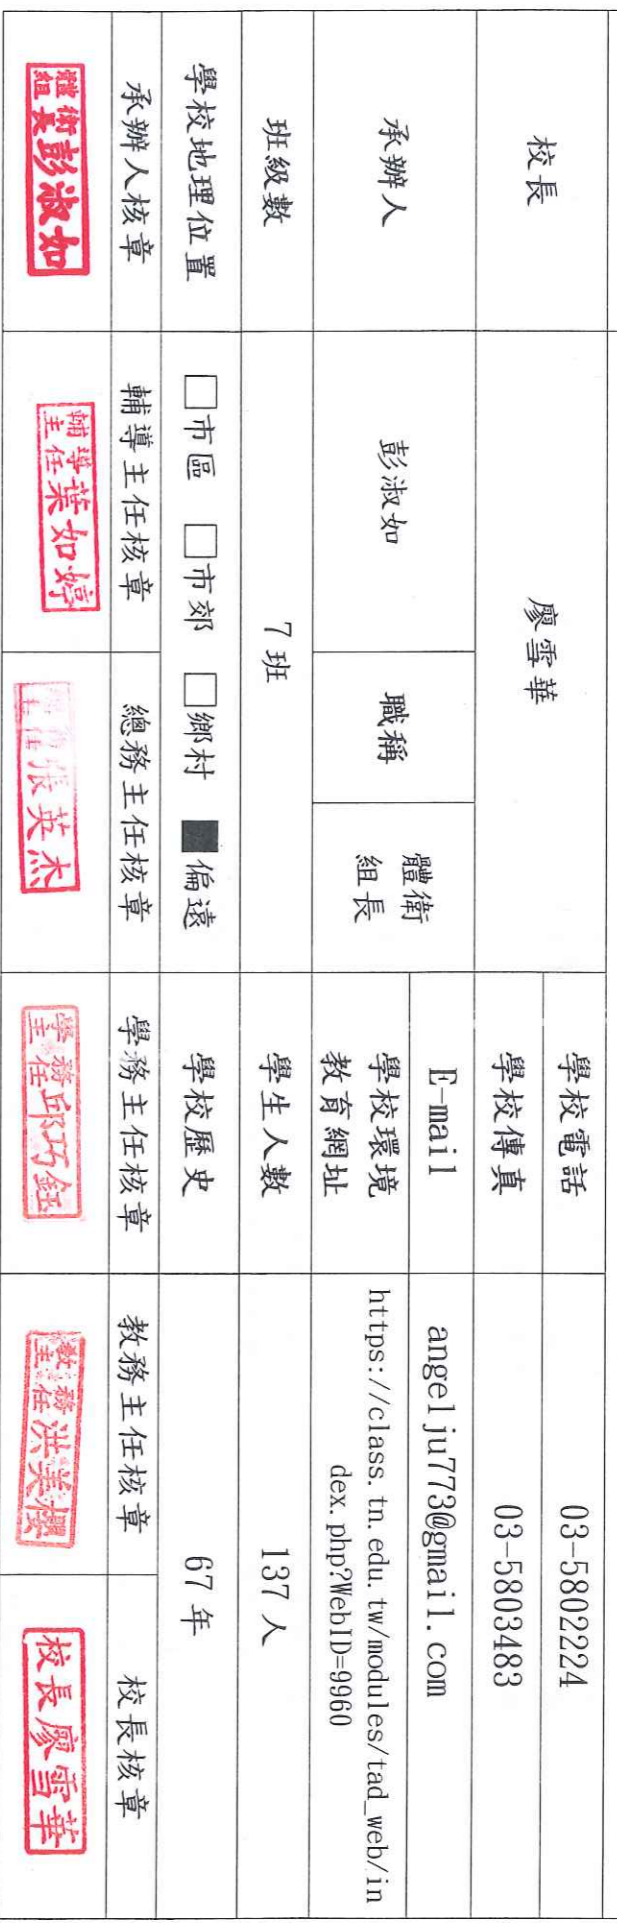 校長 廖雪華 學校電話 03-5802224
學校傳真 03-5803483
承辦人 彭淑如 職稱 體衛
組長
E-mail angelju773@gmail.com
學校環境
教育網址
https://class.tn.edu.tw/modules/tad_web/in
dex.php?WebID=9960
班級數 7 班 學生人數 137 人
學校地理位置 □市區 □市郊 □鄉村 ■偏遠 學校歷史 67 年
承辦人核章 輔導主任核章 總務主任核章 學務主任核章 教務主任核章 校長核章
體衛
組長 彭淑如
輔導
主任 葉如婷
張英杰
學務
主任 邱巧鈺
教務
主任 洪美櫻
校長廖雪華